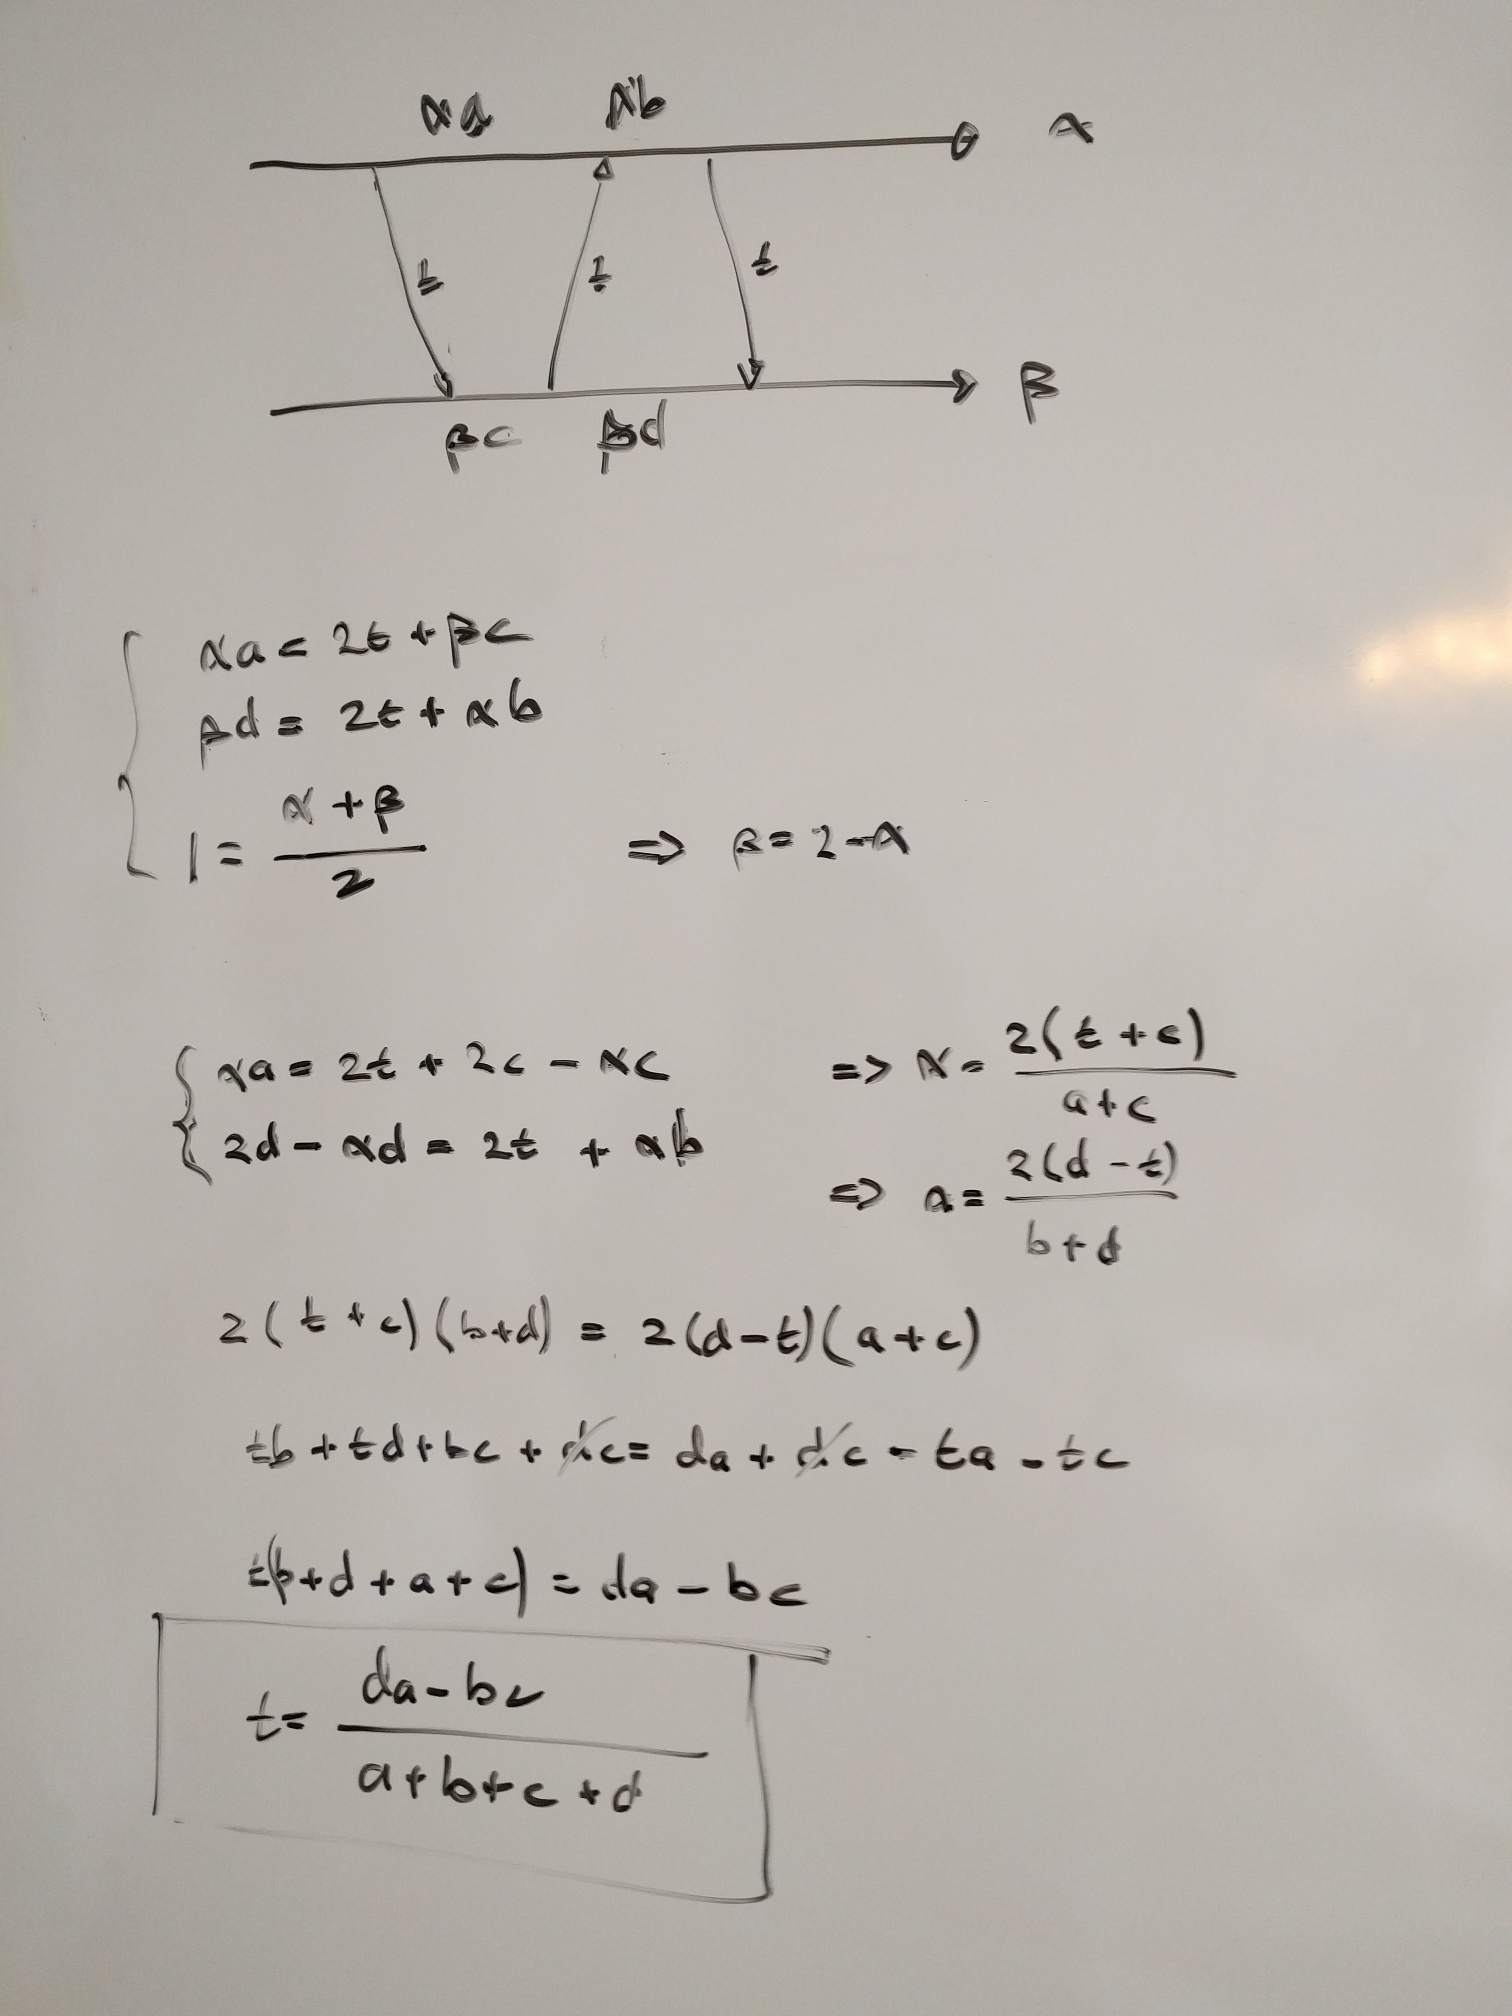 αa αb
α
t t t
β
βc βd
αa = 2t + βc
βd = 2t + αb
1 = (α + β)/2 => β = 2 - α
αa = 2t + 2c - αc => α = 2(t + c)/(a + c)
2d - αd = 2t + αb => α = 2(d - t)/(b + d)
2(t + c)(b + d) = 2(d - t)(a + c)
tb + td + bc + dc = da + dc - ta - tc
t(b + d + a + c) = da - bc
t = (da - bc)/(a + b + c + d)